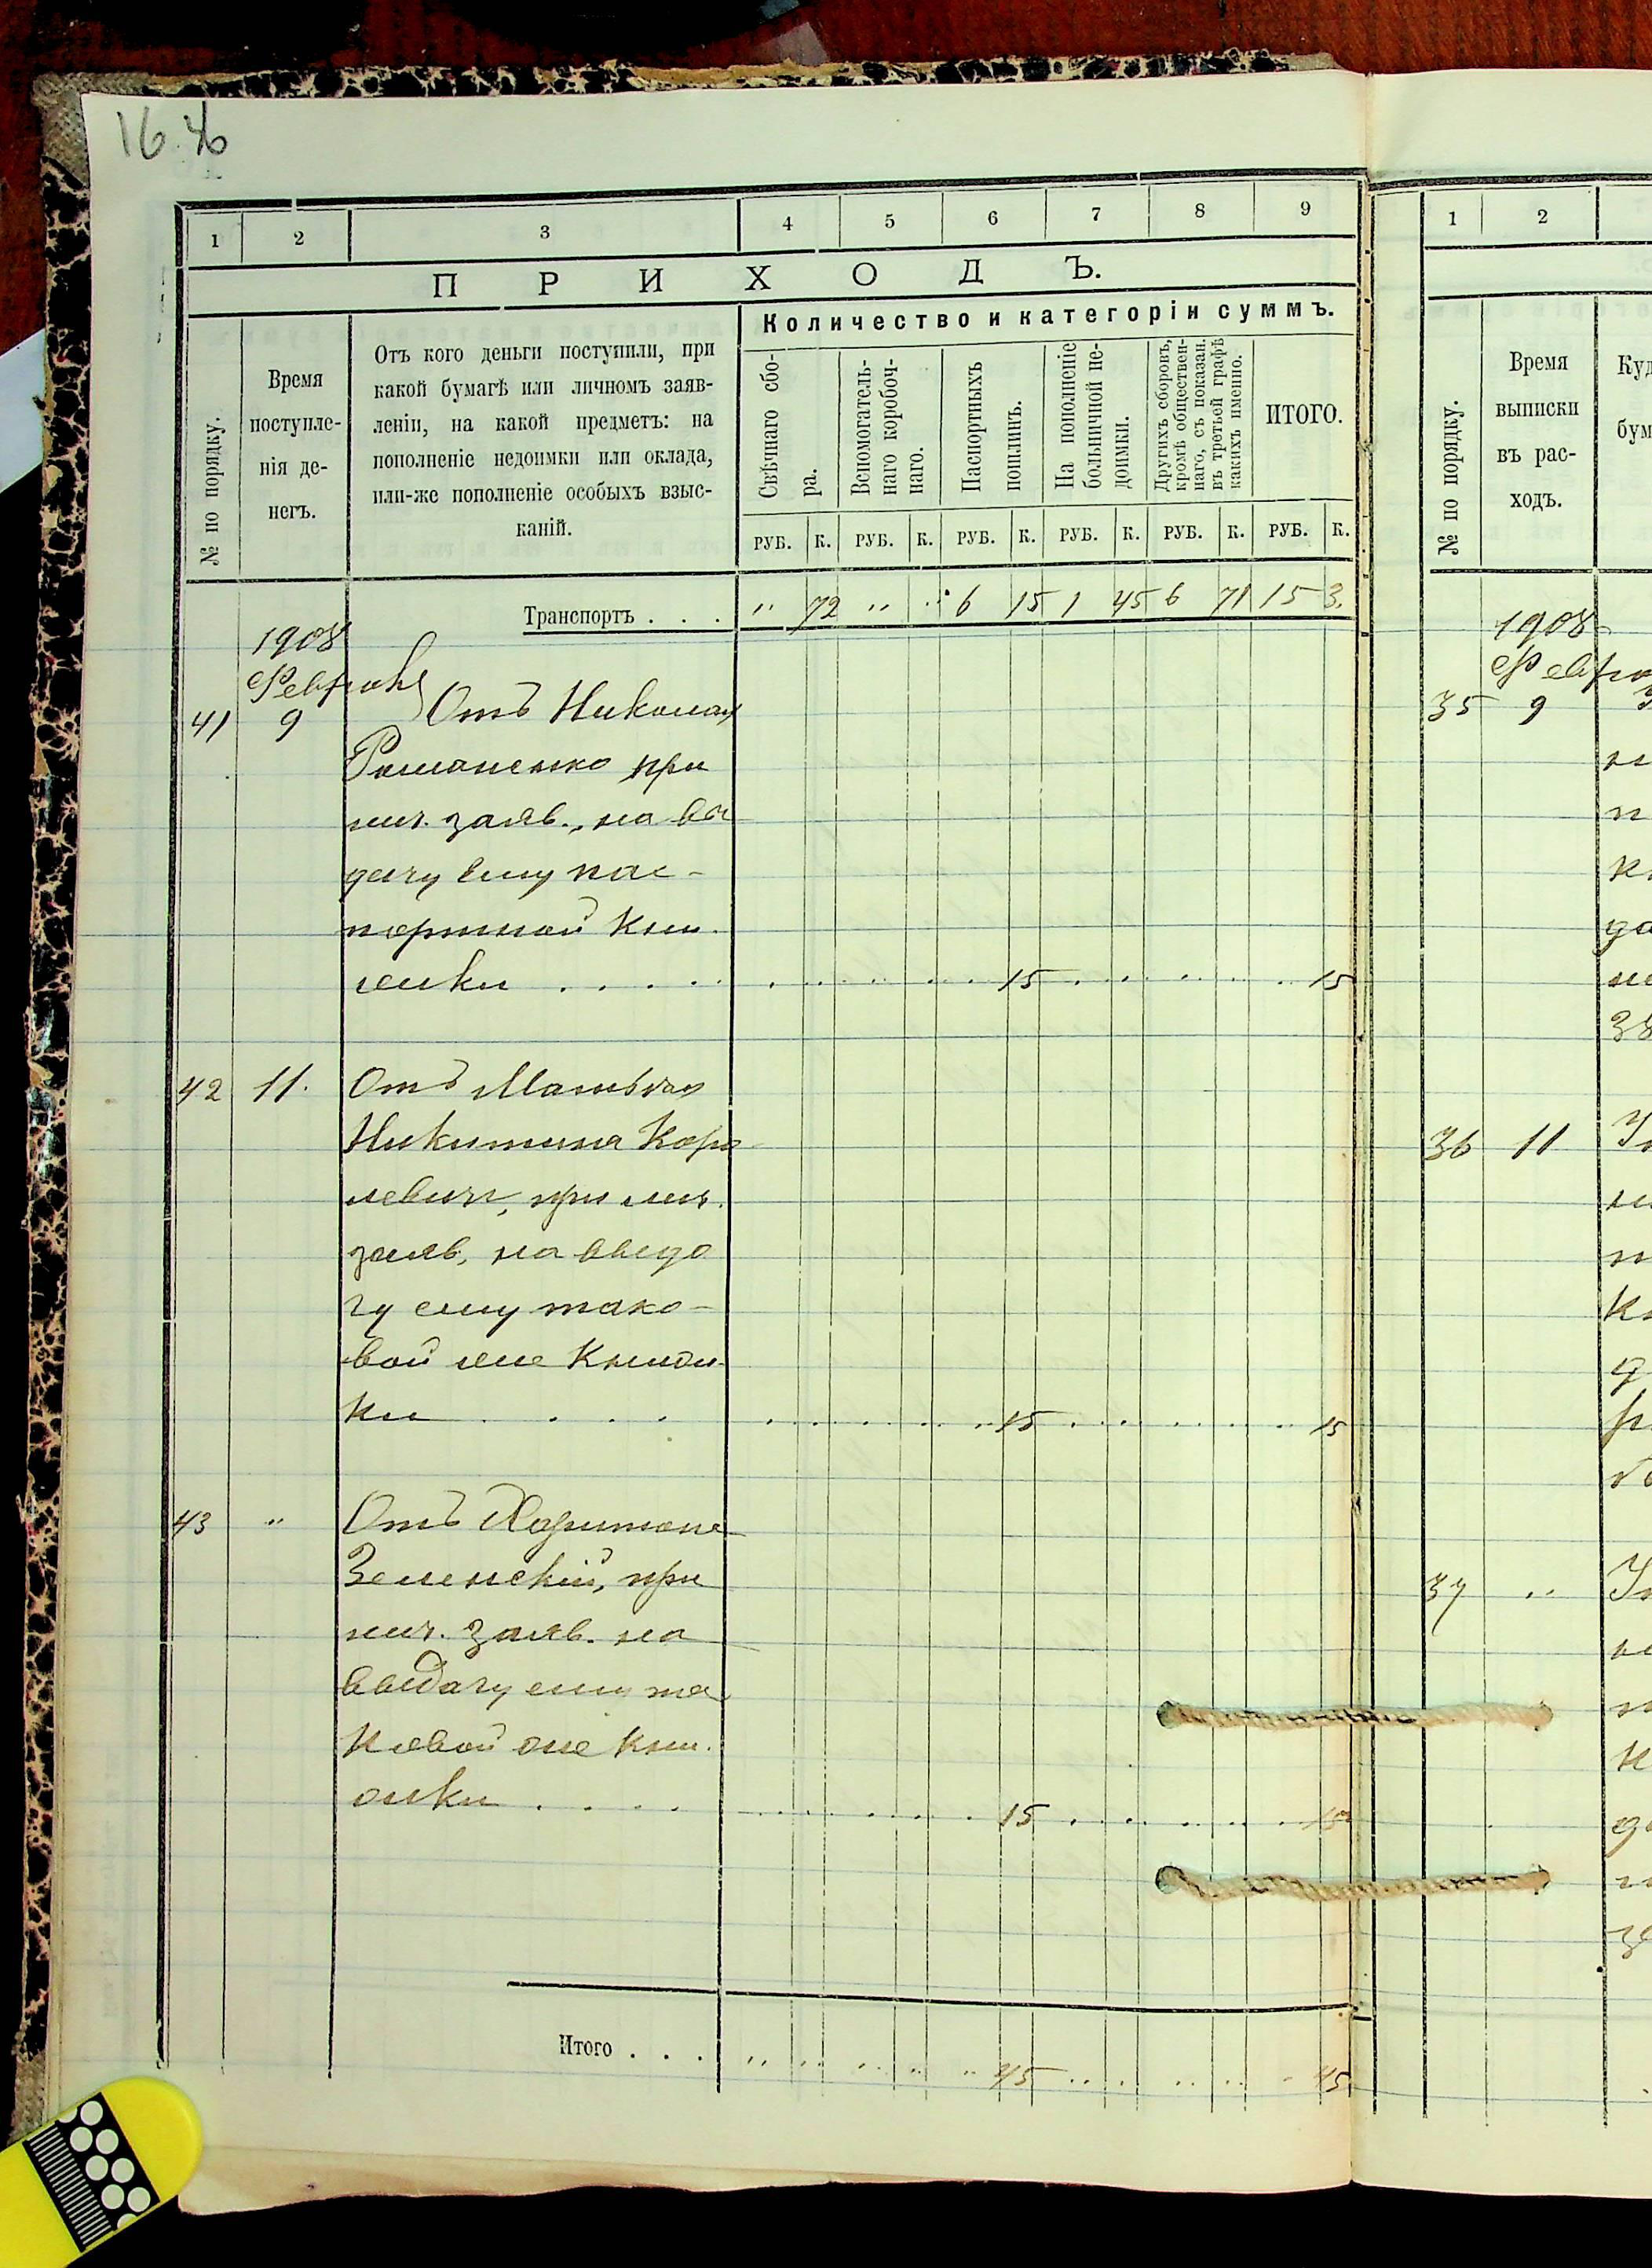 16
1 2 3 4 5 6 7 8 9
ПРИХОДЪ.
№ по порядку.
Время
поступле-
нія де-
негъ.
Отъ кого деньги поступили, при
какой бумагѣ или личномъ заяв-
леніи, на какой предметъ: на
пополненіе недоимки или оклада,
или-же пополненіе особыхъ взыс-
каній.
Количество и категоріи суммъ.
Свѣчнаго сбо-
ра.
Вспомогатель-
наго коробоч-
наго.
Паспортныхъ
пошлинъ.
На пополненіе
больничной не-
доимки.
Другихъ сборовъ,
кромѣ обществен-
наго, съ показан.
въ третьей графѣ
какихъ именно.
ИТОГО.
РУБ. К. РУБ. К. РУБ. К. РУБ. К. РУБ. К. РУБ. К.
Транспортъ . . . " 72 " " 6 15 1 45 6 71 15 3.
1908
Февраля
41 9 Отъ Николая
Романенко при
лич. заяв., на вы
дачу ему пас-
портной кни-
жки . . . . 15 15
42 11. Отъ
Никитина Коро
левича, при лич.
заяв, на выда
чу ему тако-
вой же книж-
ки . . . . 15 15
43 " Отъ Харитона
Зеленскій, при
лич. заяв. на
выдачу ему та
ковой же кни-
жки . . . . 15 15
Итого . . . 45 45
1 2
№ по порядку.
Время
выписки
въ рас-
ходъ.
Куд
бум
1908
Февра
35 9
36 11
37 "